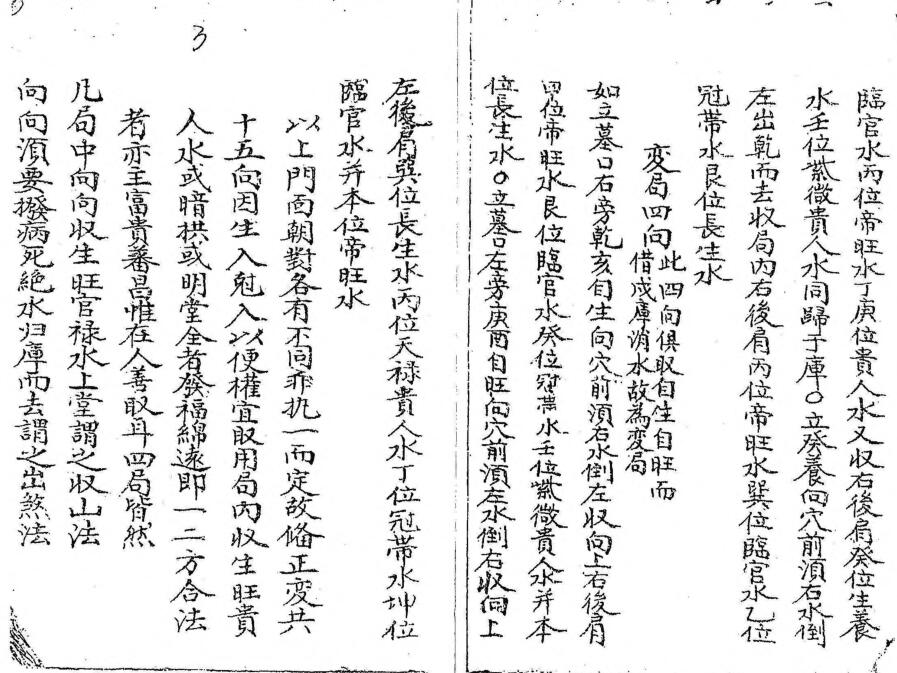 臨官水丙位帝旺水丁庚位貴人水又収右後肩癸位生養
水壬位紫微貴人水同歸于庫〇立癸養向穴前須右水倒
左出乾而去収局內右後肩丙位帝旺水巽位臨官水乙位
冠帶水艮位長生水
変局四向
此四向俱取自生自旺而
借戌庫消水故為変局
如立墓口右旁乾亥自生向穴前須右水倒左収向上右後肩
甲位帝旺水艮位臨官水癸位冠帶水壬位紫微貴人水并本
位長生水〇立墓口左旁庚酉自旺向穴前須左水倒右収向上
3
左後肩巽位長生水丙位天禄貴人水丁位冠帶水坤位
臨官水并本位帝旺水
以上門面朝對各有不同非执一而定故俻正変共
十五向因生入尅入以便權宜取用局內収生旺貴
人水或暗拱或明堂全者發福綿遠即一二方合法
者亦主富貴蕃昌惟在人善取耳四局皆然
凡局中向向収生旺官禄水上堂謂之収山法
向向須要撥病死絶水归庫而去謂之出煞法